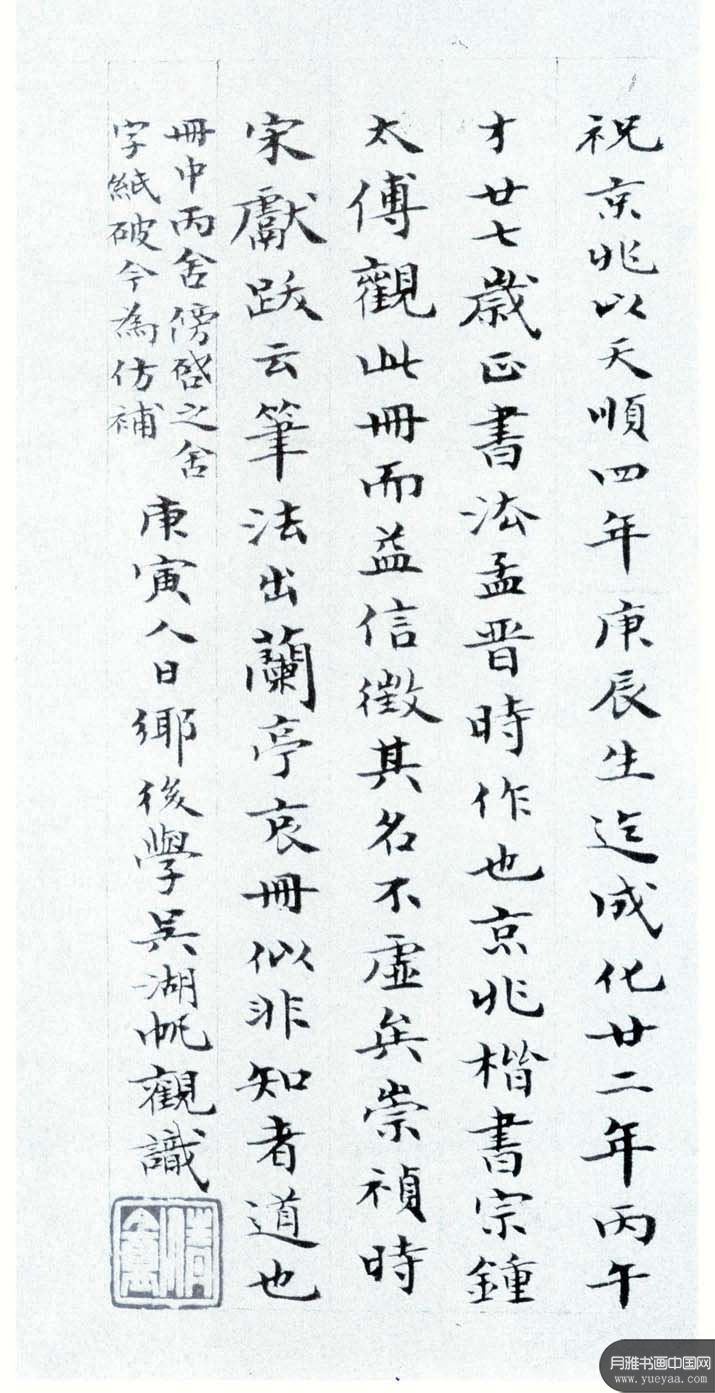 祝京兆以天順四年庚辰生迄成化廿二年丙午
才廿七歲正書法孟晉時作也京兆楷書宗鍾
太傅觀此冊而益信徵其名不虛矣崇禎時
宋獻跋云筆法出蘭亭哀冊似非知者道也
冊中丙舍傍啓之舍
字紙破今為仿補
庚寅人日鄉後學吳湖帆觀識
月雅书画中国网
www.yueyaa.com